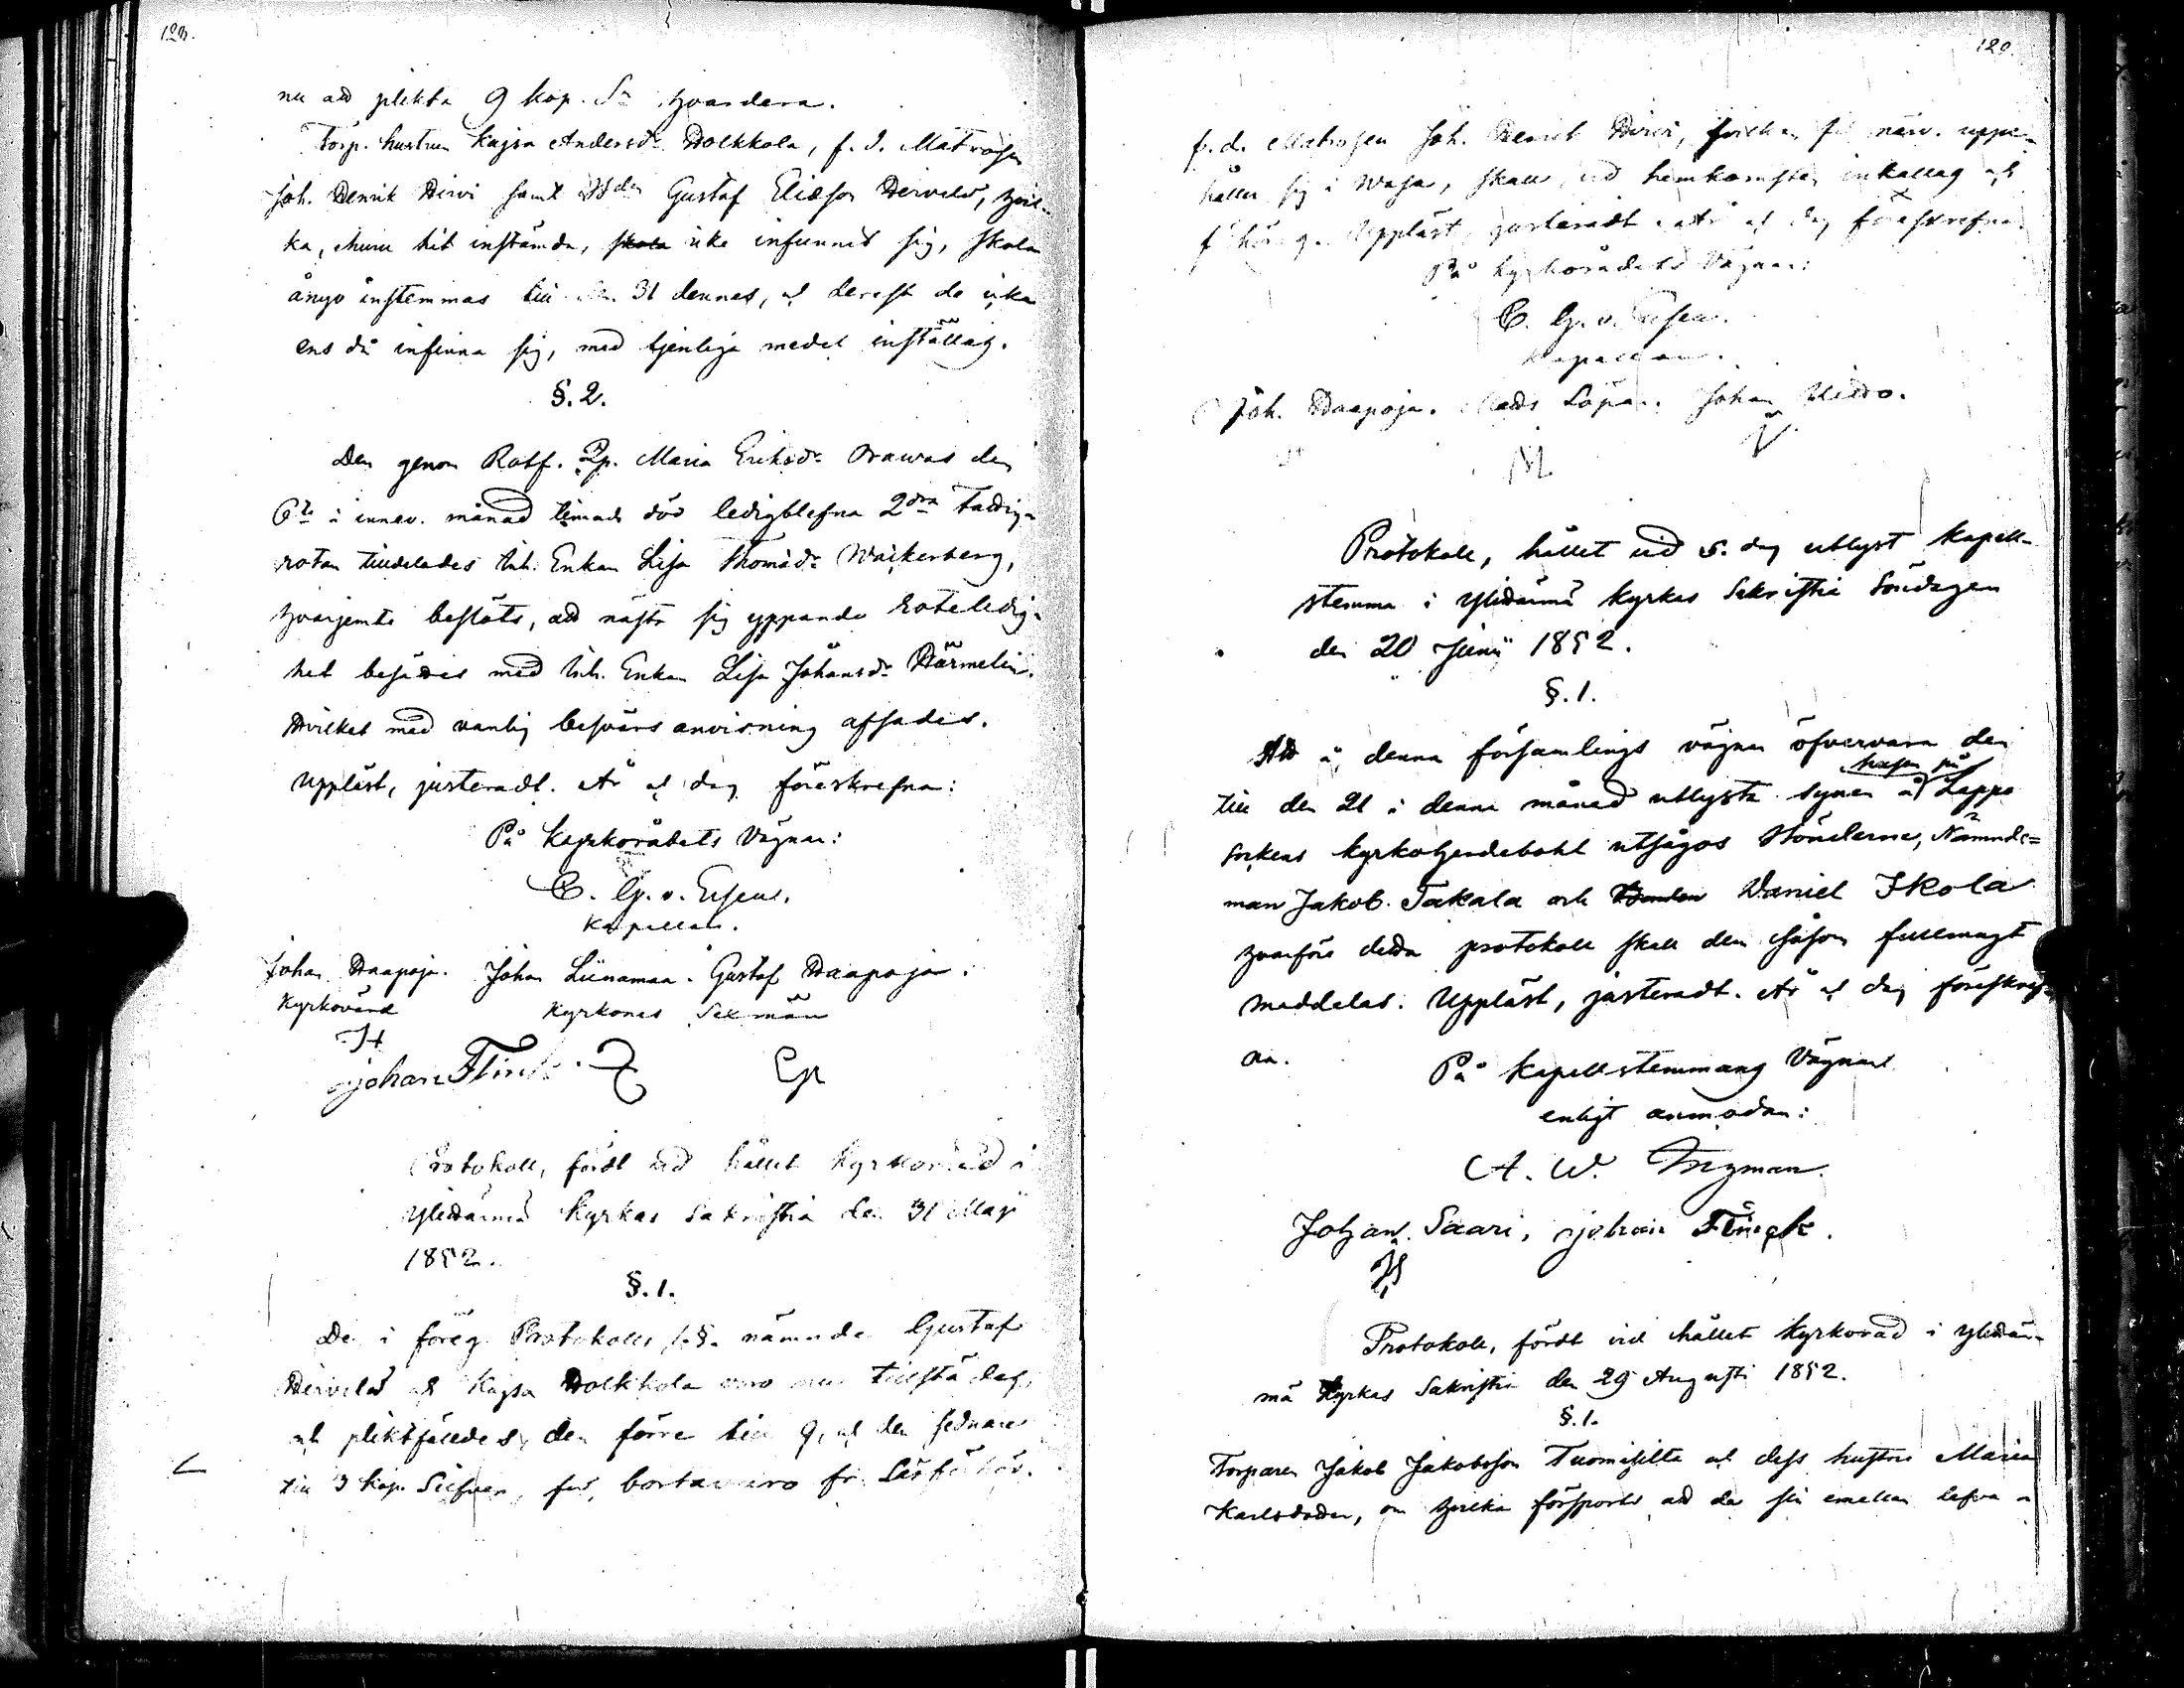 nu att plikta 9 kop. Sr hvardera.
Torp. hustrun Kajsa Andersdr Holkkola, f. d. Matrosen
Joh. Henrik Hirvi samt Gustaf Eliæson Hervelä, hvil-
ka, ehuru hit instämda, skola icke infunnit sig, skola
ånyo instemmas till den 31 dennes, och derest de icke
ens då infinna sig, med tjenliga medel inställas.
§. 2.
Den genom Rotf. Pig. Maria Eriksdr Orawas den
6te i innev. månad timade död ledigblefna 2dra Fattig-
rotan tilldelades Inh. Enkan Lisa Thomædr Waikerberg,
hvarjemte beslöts, att nästa sig yppande roteledig-
het besättes med Inh. Enkan Lisa Johansdr Härmelin.
Hvilket med vanlig besvärsanvisning afsades.
Uppläst, justeradt. År och dag föreskrefna:
På Kyrkorådets Vägnar:
C. G. v. Essen.
Kapellan.
Johan Haapoja. Johan Liinamaa. Gustaf Haapoja.
Kyrkovärd Kyrkones Sexmän
Johan Flinck.
Protokoll, fördt vid hållet Kyrkoråd i
Ylihärmä Kyrkas Sakristia den 31 Maji
1852.
§. 1.
De i föreg. Protokolls 1. §. nämnde Gustaf
Hervelä och Kajsa Holkkola voro nu tillstädes,
och pliktfälldes, den förre till 9, och den sednare
till 3 kop. Silfver, för bortavaro fr. Läsförhör.
120.
f. d. Matrosen Joh. Henrik Hirvi, hvilken för närv. uppe-
håller sig i Wasa, skall vid hemkomsten inkallas och
förhöras. Uppläst, justeradt. År och dag föreskrefna
På Kyrkorådets Vägnar:
C. G. v. Essen.
Kapellan.
Joh. Haapoja. Mats Löpar. Johan
Protokoll, hållet vid s. dag utlyst Kapell-
stemma i Ylihärmä Kyrkas Sakristia Söndagen
den 20 Junii 1852.
§. 1.
Att å denna församlings vägnar öfvervara den
till den 21 i denna månad utlysta synen å Lappo
Sockens Kyrkoherdebohl utsågos Bönderne, Nämnde=
man Jakob Takala och Daniel Ikola
hvarföre detta protokoll skall dem såsom fullmagt
meddelas. Uppläst, justeradt. År och dag föreskref-
na. På Kapellstemmans Vägnar
enligt anmodan:
A. W. Ingman.
Johan Saari, Johan Flinck.
Protokoll, fördt vid hållet Kyrkoråd i Ylihär-
mä Kyrkas Sakristia den 29 Augusti 1852.
§. 1.
Torparen Jakob Jakobsson Tuomisilta och dess hustru Maria
Karlsdotter, om hvilka försports att de sin emellan lefva i